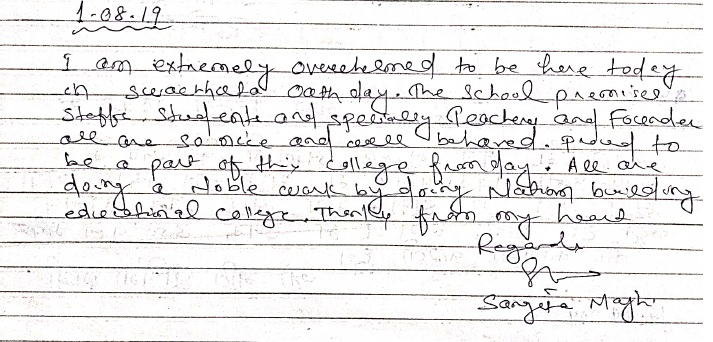 1-08-19
I am extremely overwhelmed to be here today
in swachhata oath day. The School premises
Staffs, Students and specially Teachers and Founder
all are so nice and well behaved. Proud to
be a part of this college from day. All are
doing a Noble work by doing Nation building
educational college. Thanks from my heart
Regards
Sangita Majhi